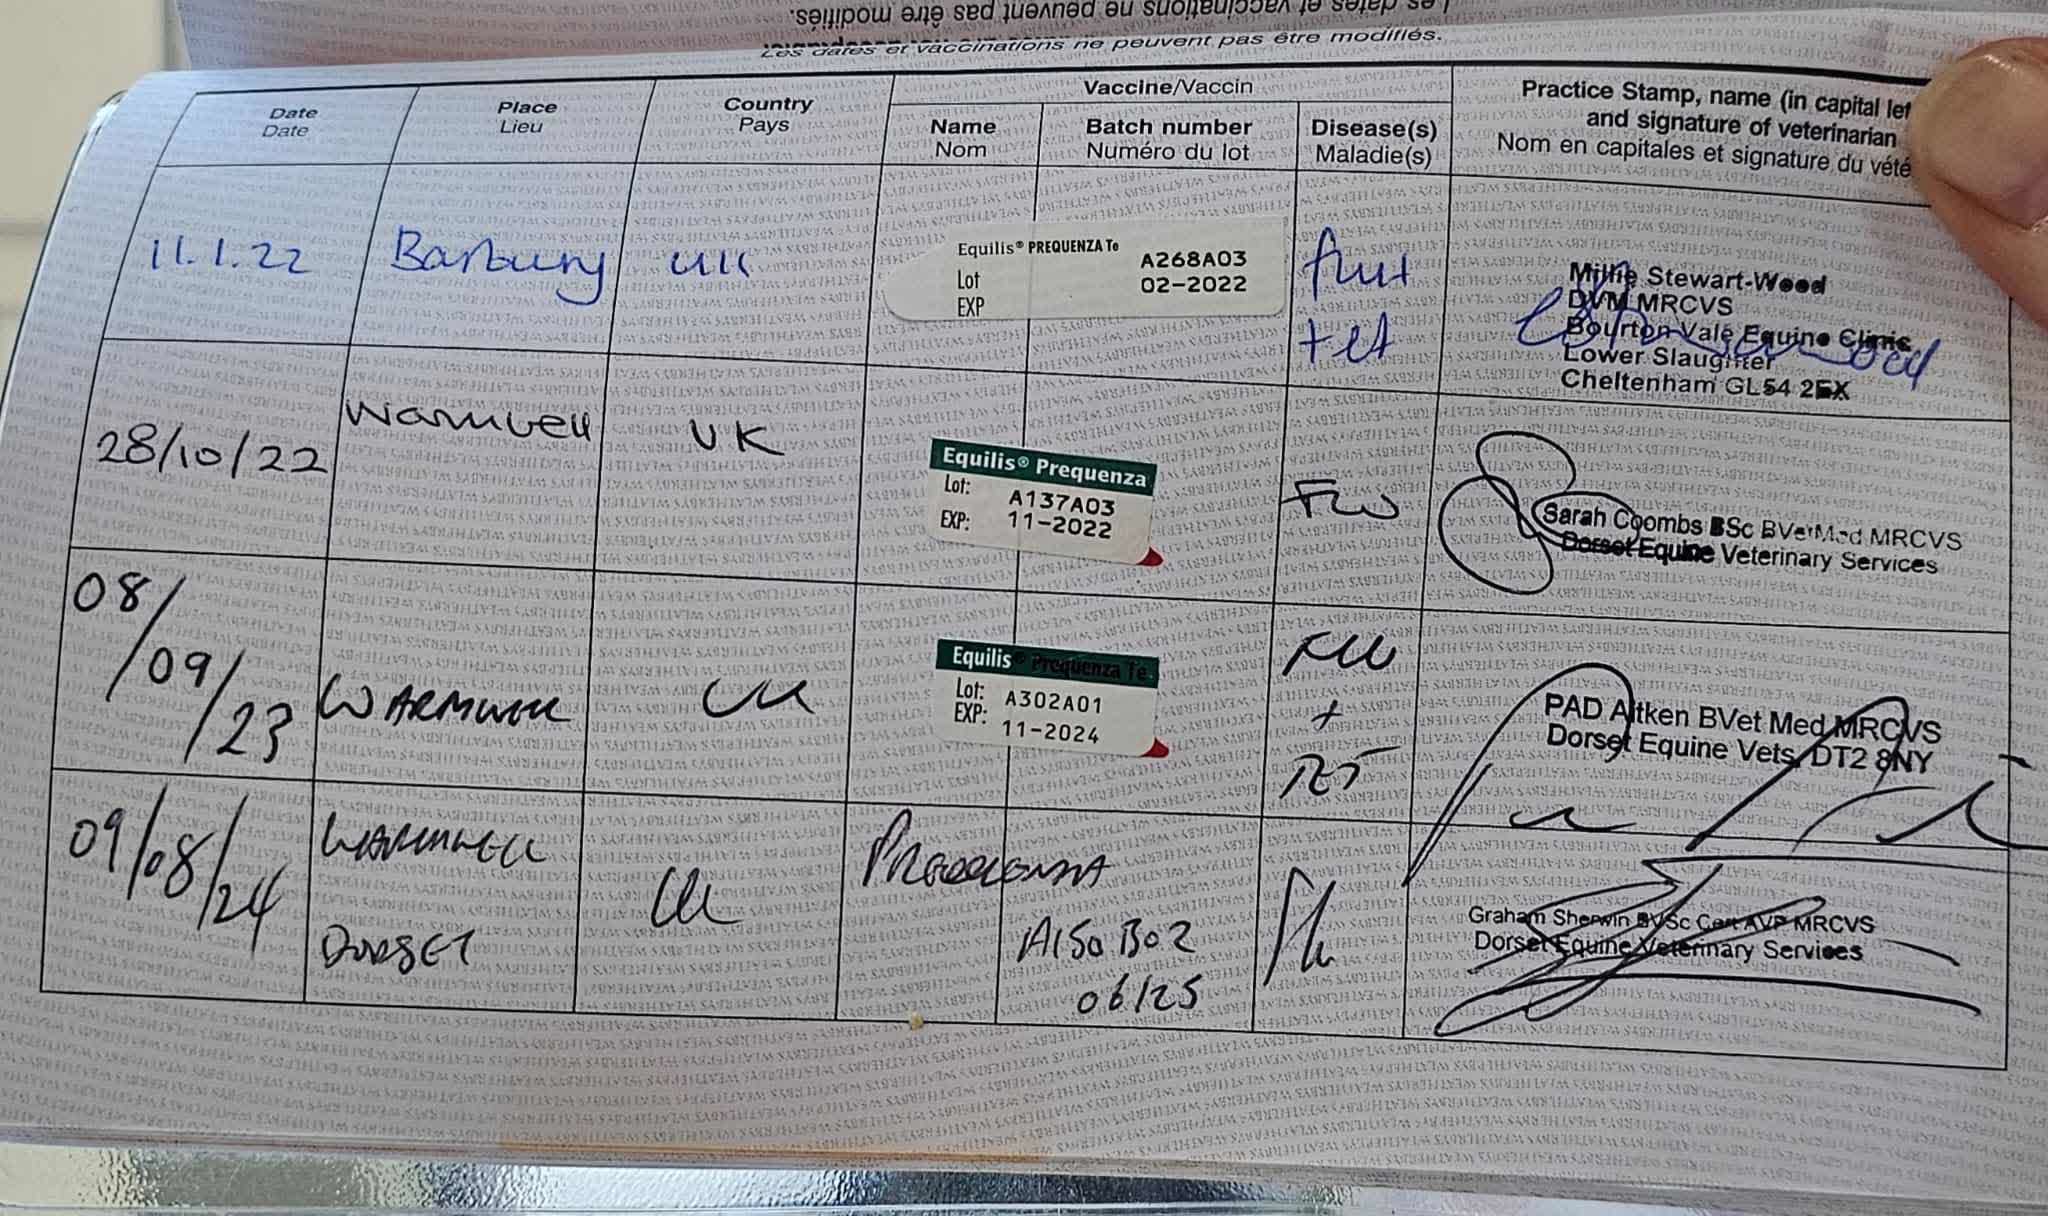 Les dates et vaccinations ne peuvent pas être modifiés.
Les dates et vaccinations ne peuvent pas être modifiés.
Date
Date
Place
Lieu
Country
Pays
Vaccine/Vaccin
Name
Nom
Batch number
Numéro du lot
Disease(s)
Maladie(s)
Practice Stamp, name (in capital let
and signature of veterinarian
Nom en capitales et signature du vété
11.1.22
Barbury
UK
Equilis® PREQUENZA Te
Lot A268A03
EXP 02-2022
flu +
tet
Millie Stewart-Wood
DVM MRCVS
Bourton Vale Equine Clinic
Lower Slaughter
Cheltenham GL54 2EX
28/10/22
Warmwell
UK
Equilis® Prequenza
Lot: A137A03
EXP: 11-2022
FLU
Sarah Coombs BSc BVetMed MRCVS
Dorset Equine Veterinary Services
08/09/23
WARMWELL
UK
Equilis® Prequenza Te.
Lot: A302A01
EXP: 11-2024
FLU
+
TET
PAD Aitken BVet Med MRCVS
Dorset Equine Vets, DT2 8NY
09/08/24
WARMWELL
DORSET
UK
PREQUENZA
A150B02
06/25
Flu
Graham Sherwin BVSc Cert AVP MRCVS
Dorset Equine Veterinary Services